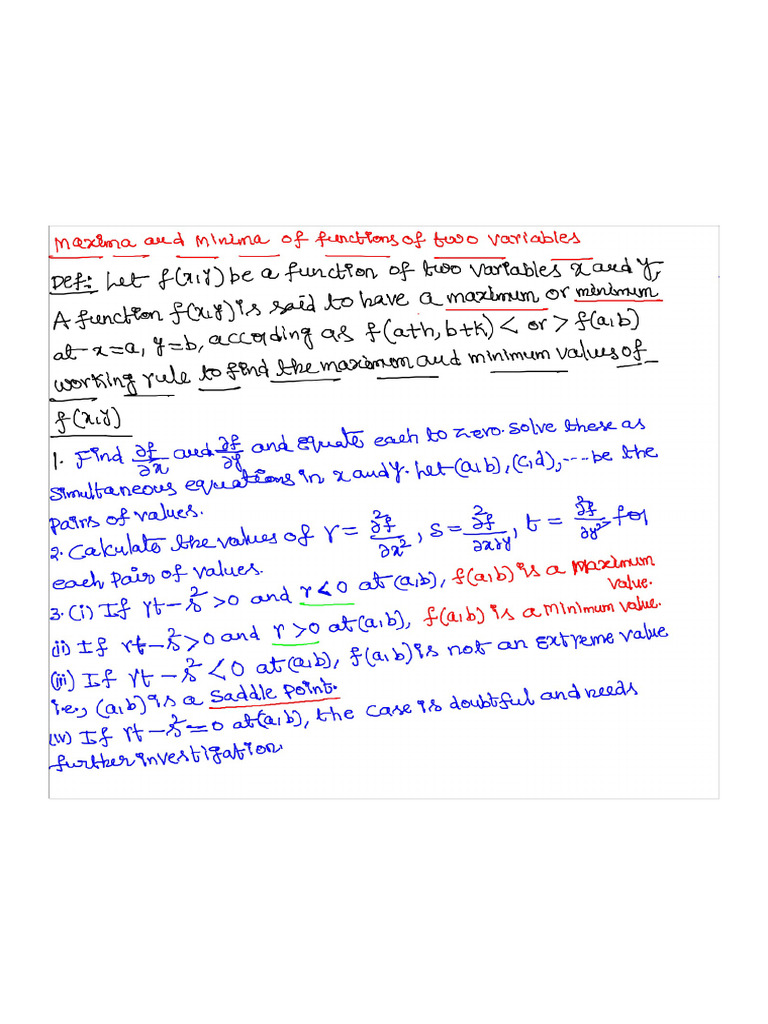 Maxima and Minima of functions of two variables
Def:- Let f(x,y) be a function of two variables x and y,
A function f(x,y) is said to have a maximum or minimum
at x=a, y=b, according as f(a+h, b+k) < or > f(a,b)
working rule to find the maximum and minimum values of
f(x,y)
1. Find ∂f/∂x and ∂f/∂y and equate each to zero. Solve these as
simultaneous equations in x and y. Let (a,b), (c,d), ---- be the
pairs of values.
2. Calculate the values of r = ∂²f/∂x², s = ∂²f/∂x∂y, t = ∂²f/∂y² for
each pair of values.
3. (i) If rt-s²>0 and r<0 at (a,b), f(a,b) is a maximum value.
(ii) If rt-s²>0 and r>0 at (a,b), f(a,b) is a minimum value.
(iii) If rt-s²<0 at (a,b), f(a,b) is not an extreme value
i.e., (a,b) is a saddle point.
(iv) If rt-s²=0 at (a,b), the case is doubtful and needs
further investigation.